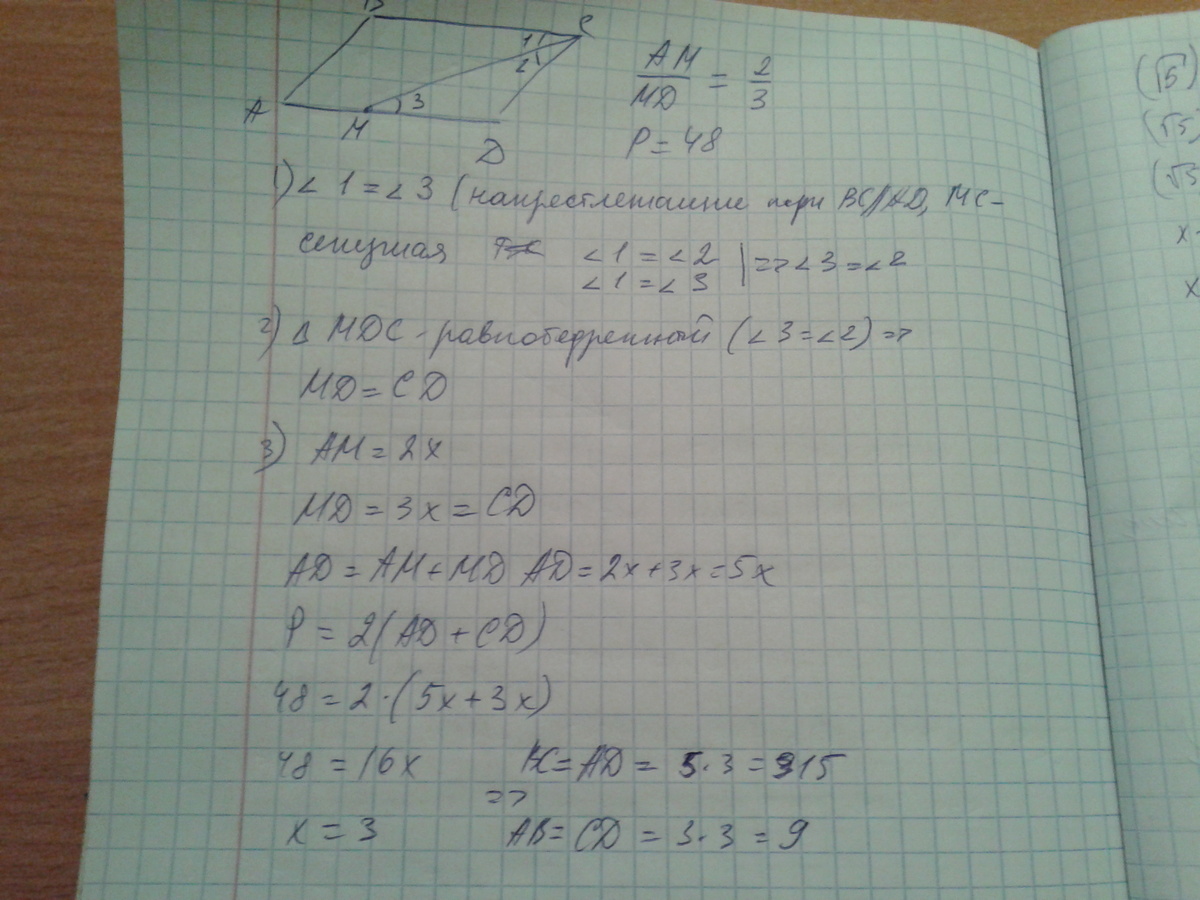 B
C
1
2
A
M
3
D
AM/MD = 2/3
P = 48
1) ∠1 = ∠3 (накрестлежащие при BC//AD, MC-
секущая ∠1 = ∠2 | => ∠3 = ∠2
∠1 = ∠3
2) Δ MDC - равнобедренный (∠3 = ∠2) =>
MD = CD
3) AM = 2x
MD = 3x = CD
AD = AM + MD AD = 2x + 3x = 5x
P = 2(AD + CD)
48 = 2 · (5x + 3x)
48 = 16x BC = AD = 5 · 3 = 15
=>
x = 3 AB = CD = 3 · 3 = 9
(√5)
(√5
(√3
x
x